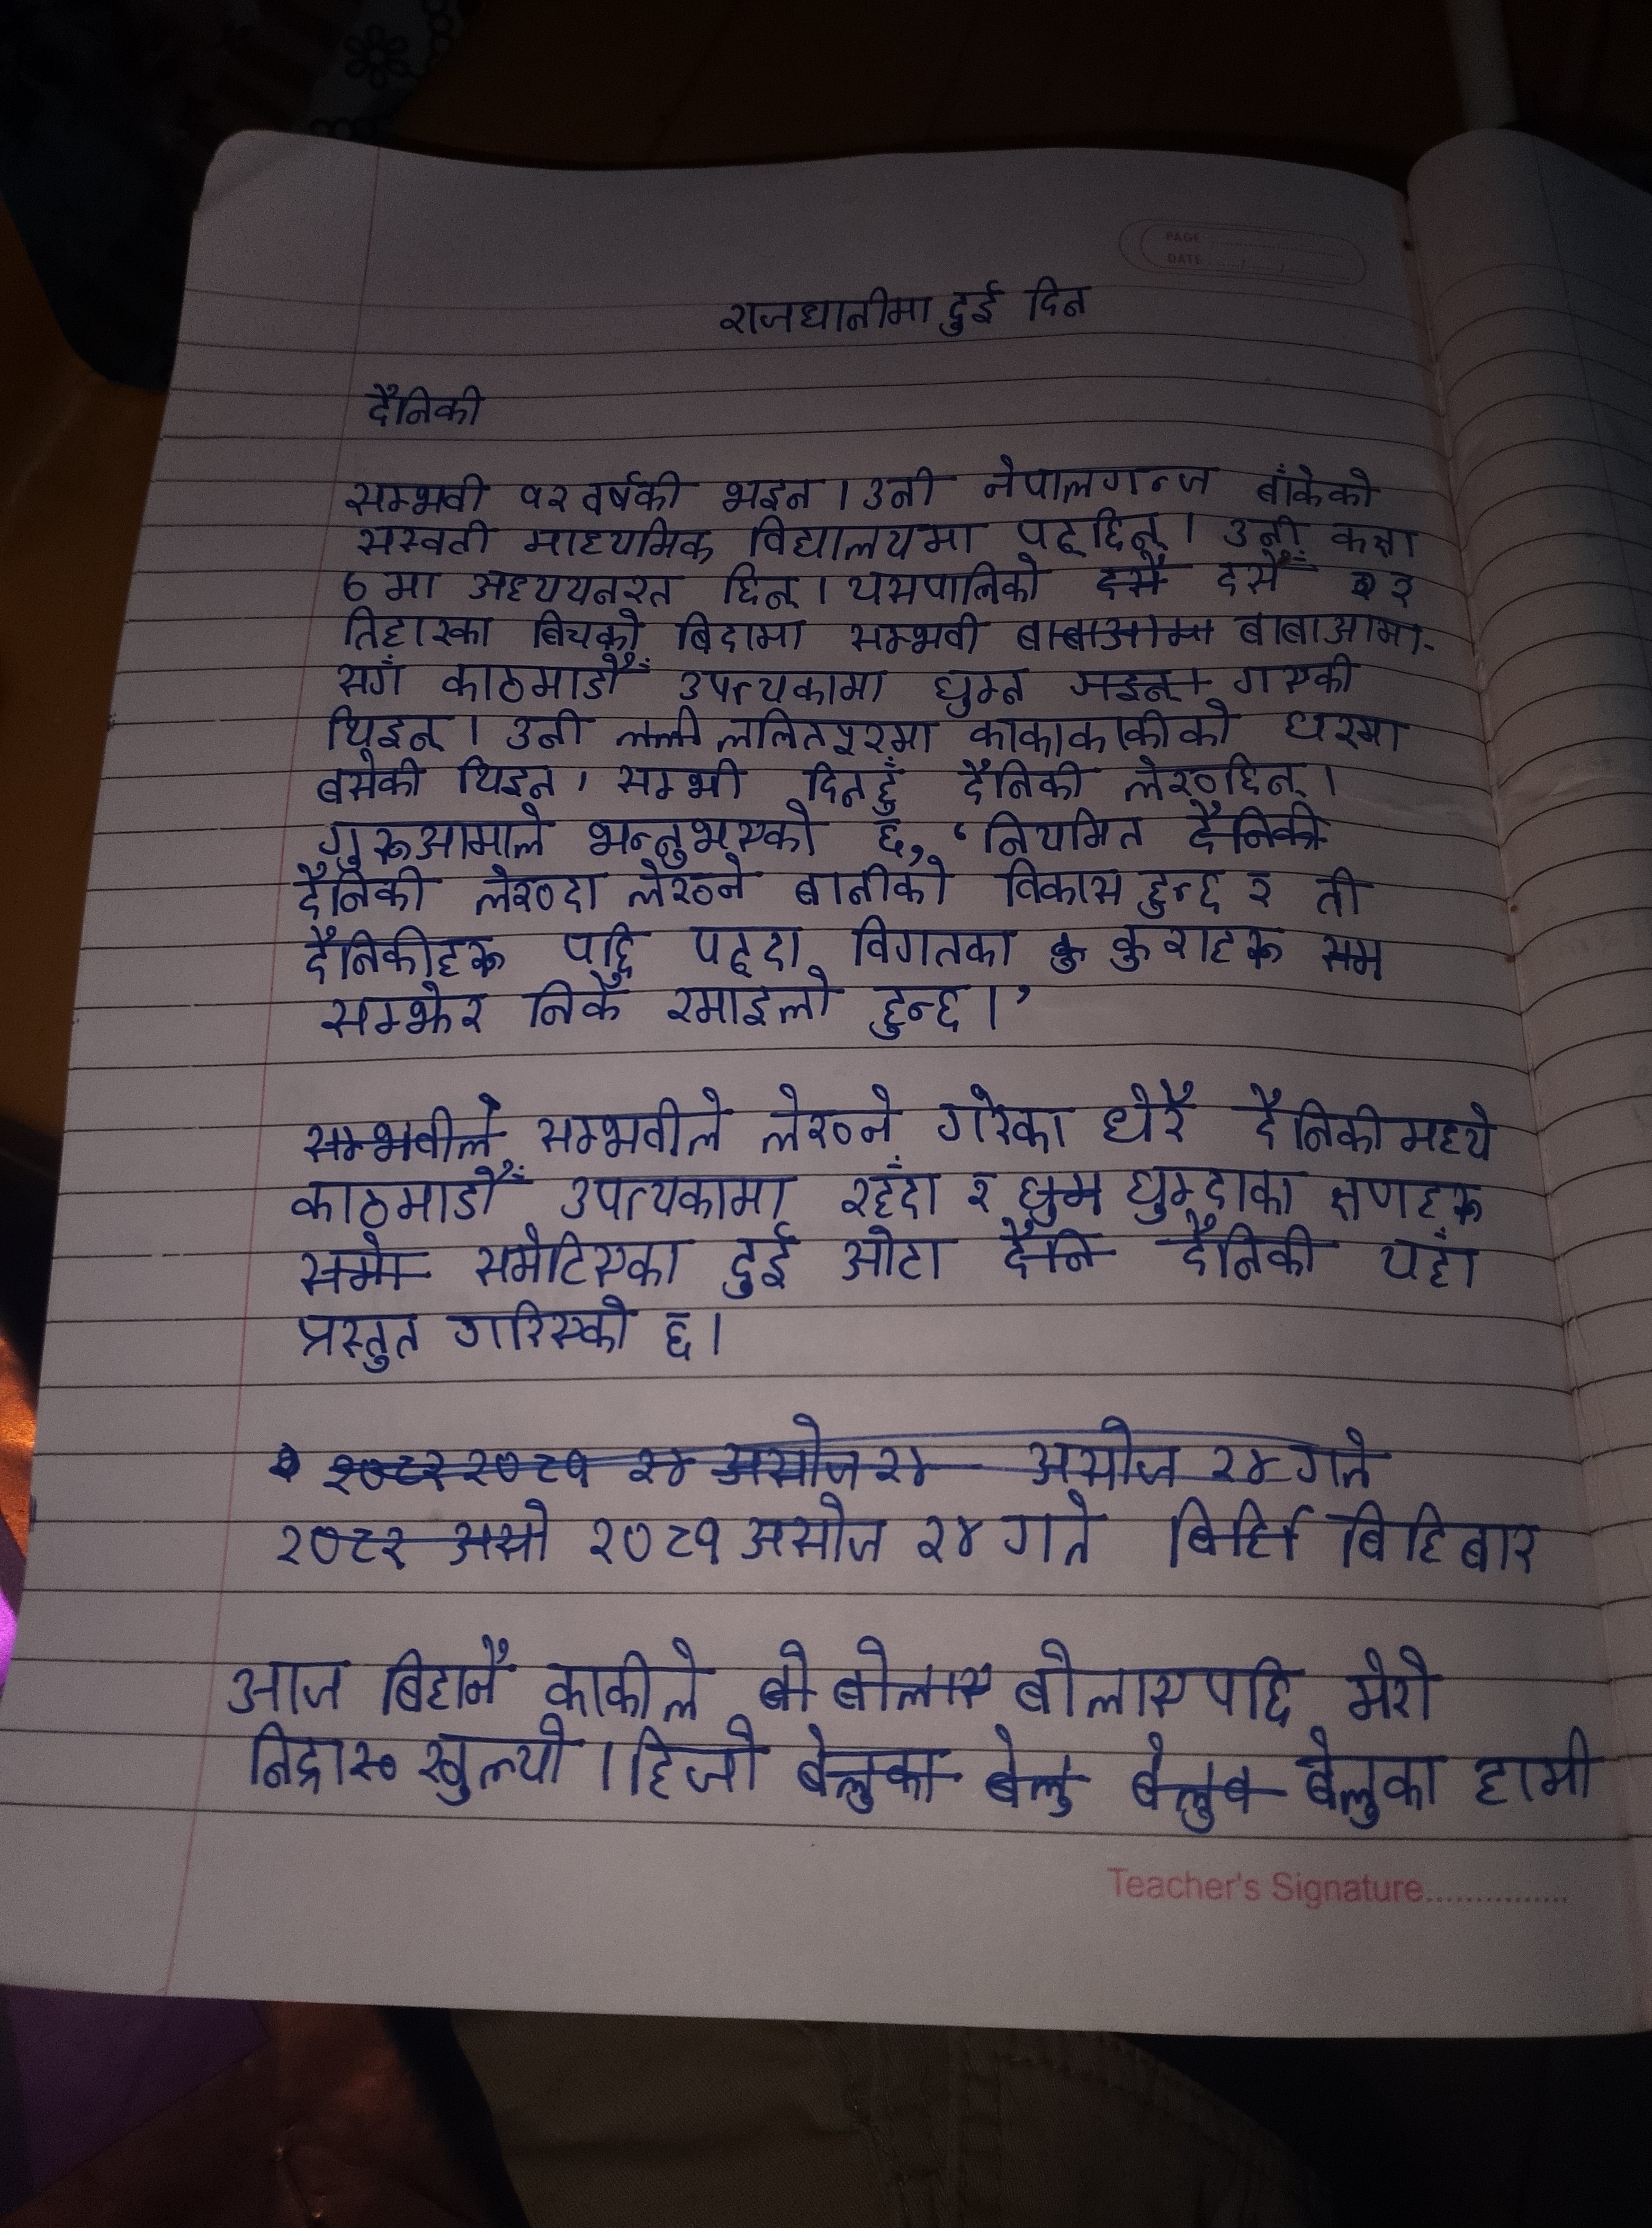 PAGE
DATE
राजधानीमा दुई दिन
दैनिकी
सम्भवी १२ वर्षकी भइन । उनी नेपालगन्ज बाँकेको
सस्वती माध्यमिक विद्यालयमा पढ्छिन् । उनी कक्षा
७ मा अध्ययनरत छिन् । यसपालिको दसैँ र
तिहारका बिचको बिदामा सम्भवी बाबाआमा-
सगँ काठमाडौँ उपत्यकामा घुम्न गएकी
थिइन् । उनी ललितपुरमा काकाकाकीको घरमा
बसेकी थिइन । सम्भी दिनहुँ दैनिकी लेख्छिन् ।
गुरूआमाले भन्नुभएको छ, ‘नियमित
दैनिकी लेख्दा लेख्ने बानीको विकास हुन्छ र ती
दैनिकीहरू पछि पढ्दा विगतका कुराहरू सम
सम्झेर निकै रमाइलो हुन्छ ।’
सम्भवीले लेख्ने गरेका धेरै दैनिकीमध्ये
काठमाडौँ उपत्यकामा रहँदा र घुम्दाका क्षणहरू
समेटिएका दुई ओटा दैनिकी यहाँ
प्रस्तुत गरिएको छ ।
२०८१ असोज २४ गते बिहिबार
आज बिहानै काकीले बोलाएपछि मेरो
निद्रा खुल्यो । हिजो बेलुका हामी
Teacher's Signature...............